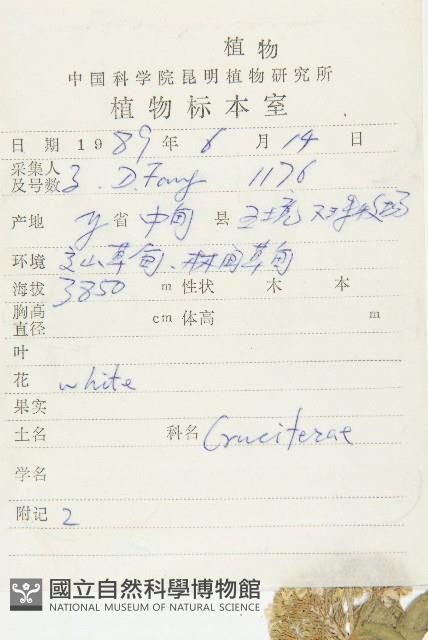 植物
中国科学院昆明植物研究所
植物标本室
日 期 1989年 6 月 14 日
采集人及号数 Z. D. Fang 1176
产地 y 省 中甸 县
环境 草甸、林间草甸
海拔 3850 m 性状 木 本
胸高直径 cm 体高 m
叶
花 white
果实
土名 科名 Cruciferae
学名
附记 2
國立自然科學博物館
NATIONAL MUSEUM OF NATURAL SCIENCE